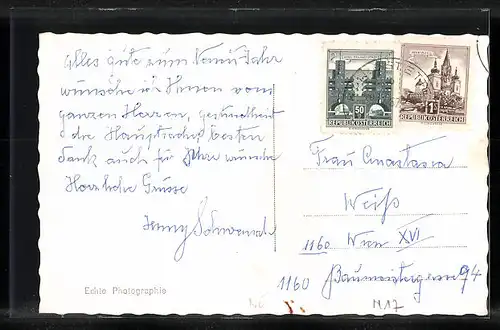 Alles gute zum Neuen Jahr
wünsche ich Ihnen vom
ganzen Herzen, gesundheit
die Hauptsache besten
dank auch für Ihre wünsche
Herzliche Grüsse
Jenny
Echte Photographie
50
REPUBLIK ÖSTERREICH
REPUBLIK ÖSTERREICH
Frau Anastasia
Weiß
1160 Wien XVI
1160 94
M17